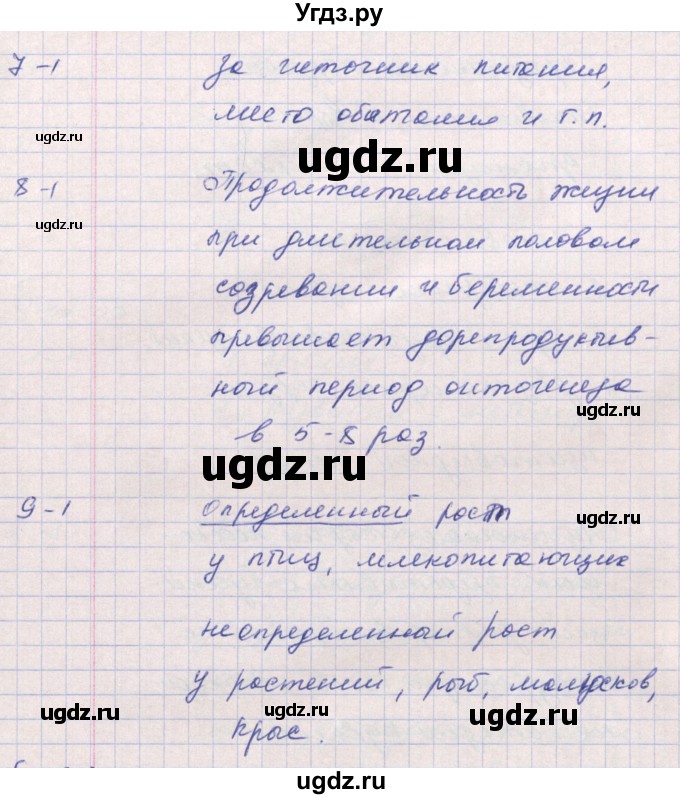 Угдз.ру
7-1 За источник питания,
место обитания и т.п.
ugdz.ru
ugdz.ru
8-1 Продолжительность жизни
ugdz.ru
при длительном половом
созревании и беременности
превышает дорепродуктив-
ный период онтогенеза
ugdz.ru
в 5-8 раз.
ugdz.ru
9-1 Определенный рост
ugdz.ru
у птиц, млекопитающих
неопределенный рост
у растений, рыб, молюсков,
ugdz.ru
ugdz.ru
ugdz.ru
крыс.
ugdz.ru